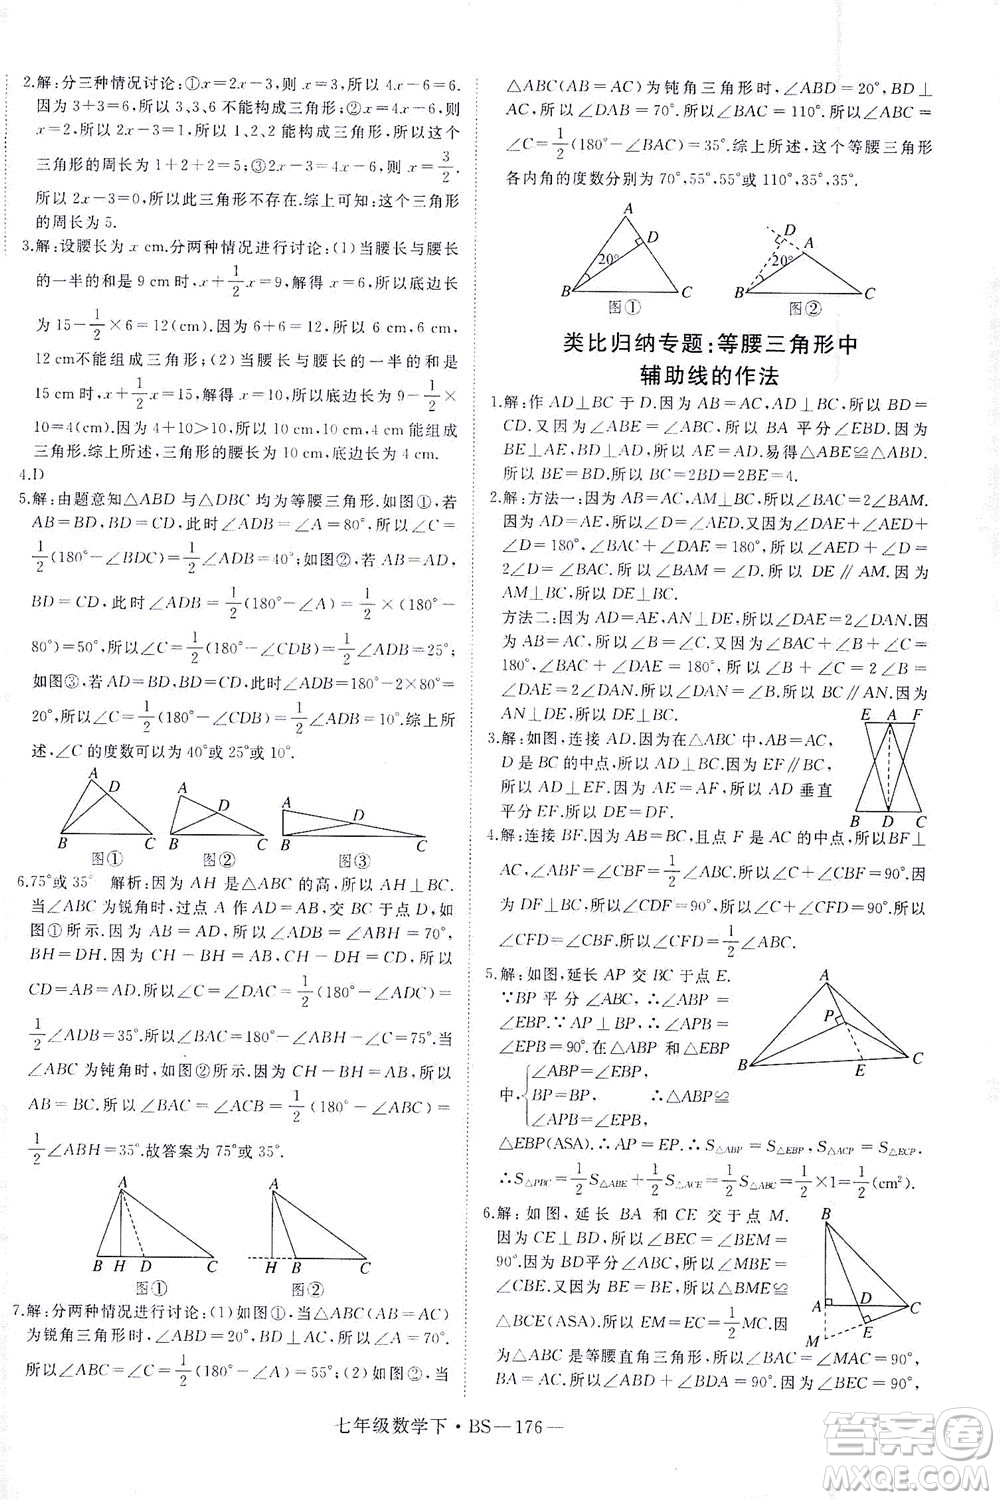 2.解:分三种情况讨论:①x=2x-3,则 x=3,所以 4x-6=6.
因为 3+3=6,所以 3、3、6 不能构成三角形;②x=4x-6,则
x=2,所以 2x-3=1.所以 1、2、2 能构成三角形,所以这个
三角形的周长为 1+2+2=5;③2x-3=4x-6,则 x=3/2.
所以 2x-3=0,所以此三角形不存在.综上可知:这个三角形
的周长为 5.
3.解:设腰长为 x cm.分两种情况进行讨论:(1)当腰长与腰长
的一半的和是 9 cm 时,x+1/2x=9,解得 x=6,所以底边
长为 15-1/2×6=12(cm).因为 6+6=12,所以 6 cm、6 cm、
12 cm不能组成三角形;(2)当腰长与腰长的一半的和是
15 cm 时,x+1/2x=15,解得 x=10,所以底边长为 9-1/2×
10=4(cm).因为 4+10>10,所以 10 cm、10 cm、4 cm能组成
三角形.综上所述,三角形的腰长为 10 cm,底边长为 4 cm.
4.D
5.解:由题意知△ABD 与△DBC 均为等腰三角形.如图①,若
AB=BD,CD=BD,此时∠ADB=∠A=80°,所以∠C=
1/2(180°-∠BDC)=1/2∠ADB=40°;如图②,若 AB=AD,
BD=CD,此时∠ADB=1/2(180°-∠A)=1/2(180°-
80°)=50°,所以∠C=1/2(180°-∠CDB)=1/2∠ADB=25°;
如图③,若 AD=BD=CD,此时∠ADB=180°-2×80°=
20°,所以∠C=1/2(180°-∠CDB)=1/2∠ADB=10°.综上所
述,∠C的度数可以为 40°或 25°或 10°.
A D B C 图①
A D B C 图②
A D B C 图③
6.75°或 35° 解析:因为 AH 是△ABC 的高,所以 AH⊥BC.
当∠ABC 为锐角时,过点 A 作 AD=AB,交 BC 于点 D,如
图①所示.因为 AB=AD,所以∠ADB=∠ABH=70°,
BH=DH.因为 AB+BH=CH,CH=CD+DH,所以
CD=AB=AD.所以∠C=∠DAC=1/2(180°-∠ADC)=
1/2∠ADB=35°.所以∠BAC=180°-∠ABH-∠C=75°.当
∠ABC 为钝角时,如图②所示.因为 CH-BH=AB,所以
AB=BC.所以∠BAC=∠ACB=1/2(180°-∠ABC)=
1/2∠ABH=35°.故答案为 75°或 35°.
A B H D C 图①
A H B C 图②
7.解:分两种情况进行讨论:(1)如图①,当△ABC(AB=AC)
为锐角三角形时,∠ABD=20°,BD⊥AC,所以∠A=70°.
所以∠ABC=∠C=1/2(180°-∠A)=55°;(2)如图②,当
△ABC(AB=AC)为钝角三角形时,∠ABD=20°,BD⊥
AC,所以∠DAB=70°,所以∠BAC=110°.所以∠ABC=
∠C=1/2(180°-∠BAC)=35°.综上所述,这个等腰三角形
各内角的度数分别为 70°,55°,55°或 110°,35°,35°.
A D 20° B C 图①
D A 20° B C 图②
类比归纳专题:等腰三角形中
辅助线的作法
1.解:作 AD⊥BC 于 D.因为 AB=AC,AD⊥BC,所以 BD=
CD.又因为∠ABE=∠ABC,所以 BA 平分∠EBD.因为
BE⊥AE,AD⊥BD,所以∠E=∠ADB.易得△ABE≌△ABD.
所以 BE=BD.所以 BC=2BD=2BE=4.
2.解:方法一:因为 AB=AC,AM⊥BC,所以∠BAC=2∠BAM.
因为 AD=AE,所以∠D=∠AED.又因为∠BAC+∠DAE
=180°,∠D+∠AED+∠DAE=180°,所以∠AED+∠D=
2∠AED=∠BAC,所以∠BAM=∠AED.所以 DE∥AM.因为
AM⊥BC,所以 DE⊥BC.
方法二:因为 AD=AE,AN⊥DE,所以∠DAE=2∠DAN.因
为 AB=AC,所以∠B=∠C.又因为∠B+∠C+∠BAC=
180°,∠BAC+∠DAE=180°,所以∠B+∠C=2∠B=
∠DAE=2∠DAN.所以∠DAN=∠B.所以 BC∥AN.因为
AN⊥DE,所以 DE⊥BC.
3.解:如图,连接 AD.因为在△ABC中,AB=AC,
D 是 BC 的中点,所以 AD⊥BC.因为 EF∥BC,
所以 AD⊥EF.因为 AE=AF,所以 AD 垂直
平分 EF.所以 DE=DF.
E A F B D C
4.解:连接 BF.因为 AB=BC,且点 F 是 AC 的中点,所以 BF⊥
AC,∠ABF=∠CBF=1/2∠ABC.所以∠CFB=90°.因
为 DF⊥BC,所以∠CDF=90°,所以∠CBF+∠BFD=90°,所以
∠CFD=∠CBF.所以∠CFD=1/2∠ABC.
5.解:如图,延长 AP 交 BC 于点 E.
∵BP 平分∠ABC,∴∠ABP=
∠EBP.∵AP⊥BP,∴∠APB=
∠EPB=90°.在△ABP 和△EBP
中,{∠ABP=∠EBP,
BP=BP,
∠APB=∠EPB,
∴△ABP≌
△EBP(ASA).∴AP=EP.∴S△ABP=S△EBP,S△ACP=S△ECP,
∴S△PBC=1/2S△ABE+1/2S△ACE=1/2S△ABC=1/2×1=1/2(cm²).
A P B E C
6.解:如图,延长 BA 和 CE 交于点 M.
因为 CE⊥BD,所以∠BEC=∠BEM
=90°.因为 BD平分∠ABC,所以∠MBE=
∠CBE.因为 BE=BE,所以△BME≌
△BCE(ASA).所以 EM=EC=1/2MC.因
为△ABC 是等腰直角三角形,所以∠BAC=∠MAC=90°,
BA=AC.所以∠ABD+∠BDA=90°.因为∠BEC=90°,
B A D C E M
七年级数学下·BS—176—
答案圈
MXQE.COM